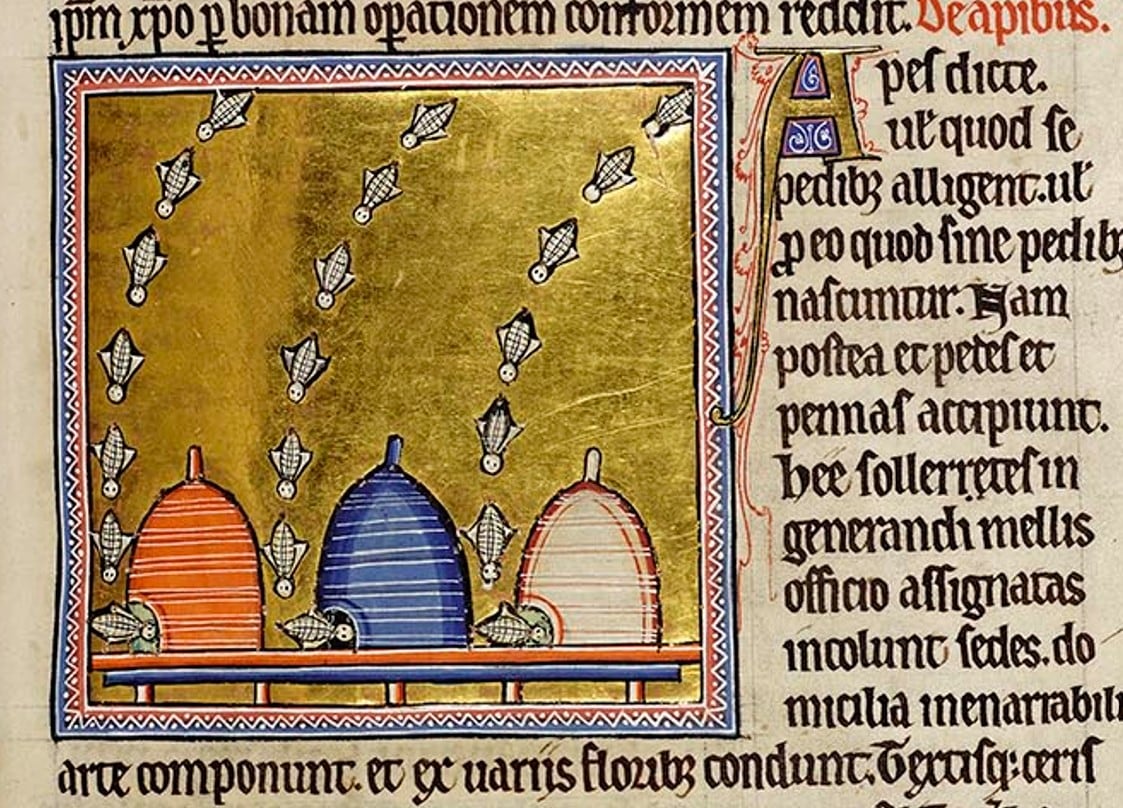 ipm xpo ꝑ bonam oꝑationem conformem reddit. De apibus.
Apes dicte.
ut̄ quod se
pedibꝫ alligent. ul̄
ꝓ eo quod sine pedibꝫ
nascuntur. Nam
postea et pedes et
pennas accipiunt.
hee sollertes in
generandi mellis
officio assignatas
incolunt sedes. do
micilia inenarrabili
arte componunt. et ex uariis floribꝫ condunt. Textisqꝫ ceris